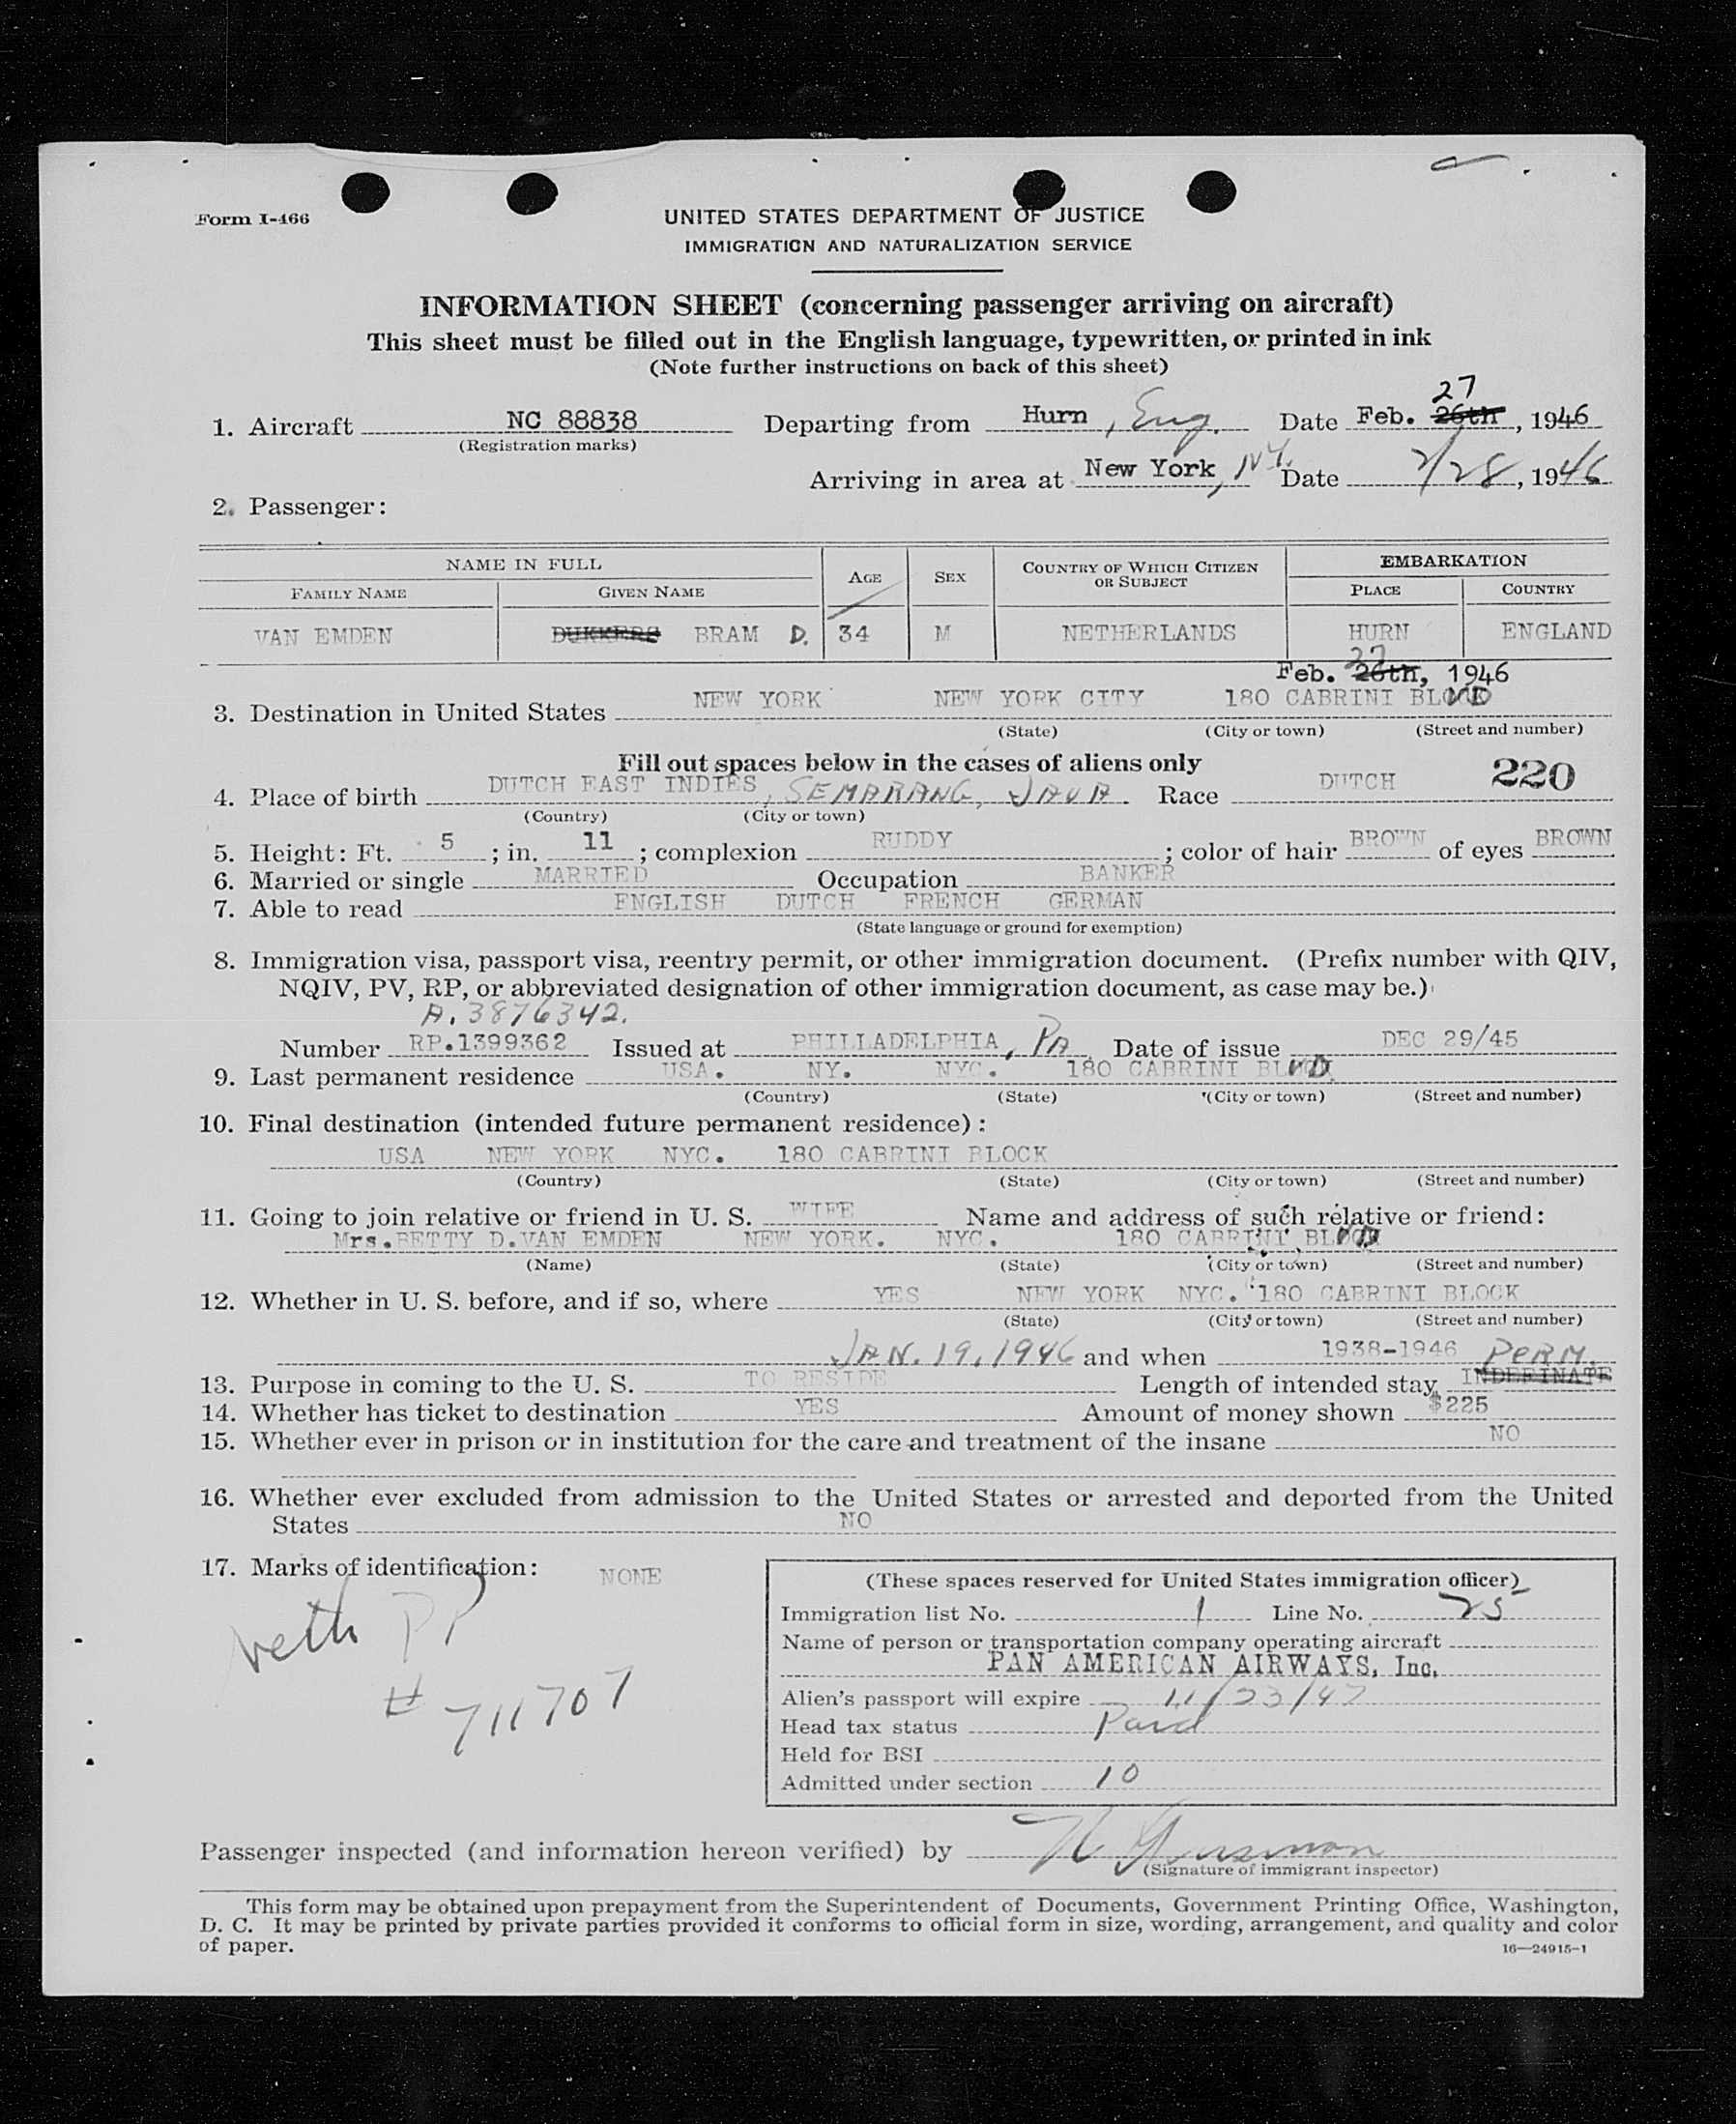 Form I-466
UNITED STATES DEPARTMENT OF JUSTICE
IMMIGRATION AND NATURALIZATION SERVICE
INFORMATION SHEET (concerning passenger arriving on aircraft)
This sheet must be filled out in the English language, typewritten, or printed in ink
(Note further instructions on back of this sheet)
27
1. Aircraft NC 88838 Departing from Hurn, Eng. Date Feb. 26th, 1946
(Registration marks)
Arriving in area at New York, N.Y. Date 2/28, 1946
2. Passenger:
NAME IN FULL AGE SEX COUNTRY OF WHICH CITIZEN OR SUBJECT EMBARKATION
FAMILY NAME GIVEN NAME PLACE COUNTRY
VAN EMDEN DUKKERS BRAM D. 34 M NETHERLANDS HURN ENGLAND
27
Feb. 26th, 1946
3. Destination in United States NEW YORK NEW YORK CITY 180 CABRINI BLVD
(State) (City or town) (Street and number)
Fill out spaces below in the cases of aliens only
4. Place of birth DUTCH EAST INDIES, SEMARANG, JAVA. Race DUTCH 220
(Country) (City or town)
5. Height: Ft. 5; in. 11; complexion RUDDY; color of hair BROWN of eyes BROWN
6. Married or single MARRIED Occupation BANKER
7. Able to read ENGLISH DUTCH FRENCH GERMAN
(State language or ground for exemption)
8. Immigration visa, passport visa, reentry permit, or other immigration document. (Prefix number with QIV,
NQIV, PV, RP, or abbreviated designation of other immigration document, as case may be.)
A.3876342.
Number RP.1399362 Issued at PHILLADELPHIA, PA Date of issue DEC 29/45
9. Last permanent residence USA. NY. NYC. 180 CABRINI BLVD.
(Country) (State) (City or town) (Street and number)
10. Final destination (intended future permanent residence):
USA NEW YORK NYC. 180 CABRINI BLOCK
(Country) (State) (City or town) (Street and number)
11. Going to join relative or friend in U. S. WIFE Name and address of such relative or friend:
Mrs.BETTY D.VAN EMDEN NEW YORK. NYC. 180 CABRINI BLVD
(Name) (State) (City or town) (Street and number)
12. Whether in U. S. before, and if so, where YES NEW YORK NYC. 180 CABRINI BLOCK
(State) (City or town) (Street and number)
JAN. 19, 1946 and when 1938-1946 PERM.
13. Purpose in coming to the U. S. TO RESIDE Length of intended stay INDEFINATE
14. Whether has ticket to destination YES Amount of money shown $225
15. Whether ever in prison or in institution for the care and treatment of the insane NO
16. Whether ever excluded from admission to the United States or arrested and deported from the United
States NO
17. Marks of identification: NONE
Neth PP
# 711707
(These spaces reserved for United States immigration officer)
Immigration list No. 1 Line No. 25
Name of person or transportation company operating aircraft
PAN AMERICAN AIRWAYS, Inc.
Alien's passport will expire 11/23/47
Head tax status Paid
Held for BSI
Admitted under section 10
Passenger inspected (and information hereon verified) by
(Signature of immigrant inspector)
This form may be obtained upon prepayment from the Superintendent of Documents, Government Printing Office, Washington,
D. C. It may be printed by private parties provided it conforms to official form in size, wording, arrangement, and quality and color
of paper.
16—24915-1